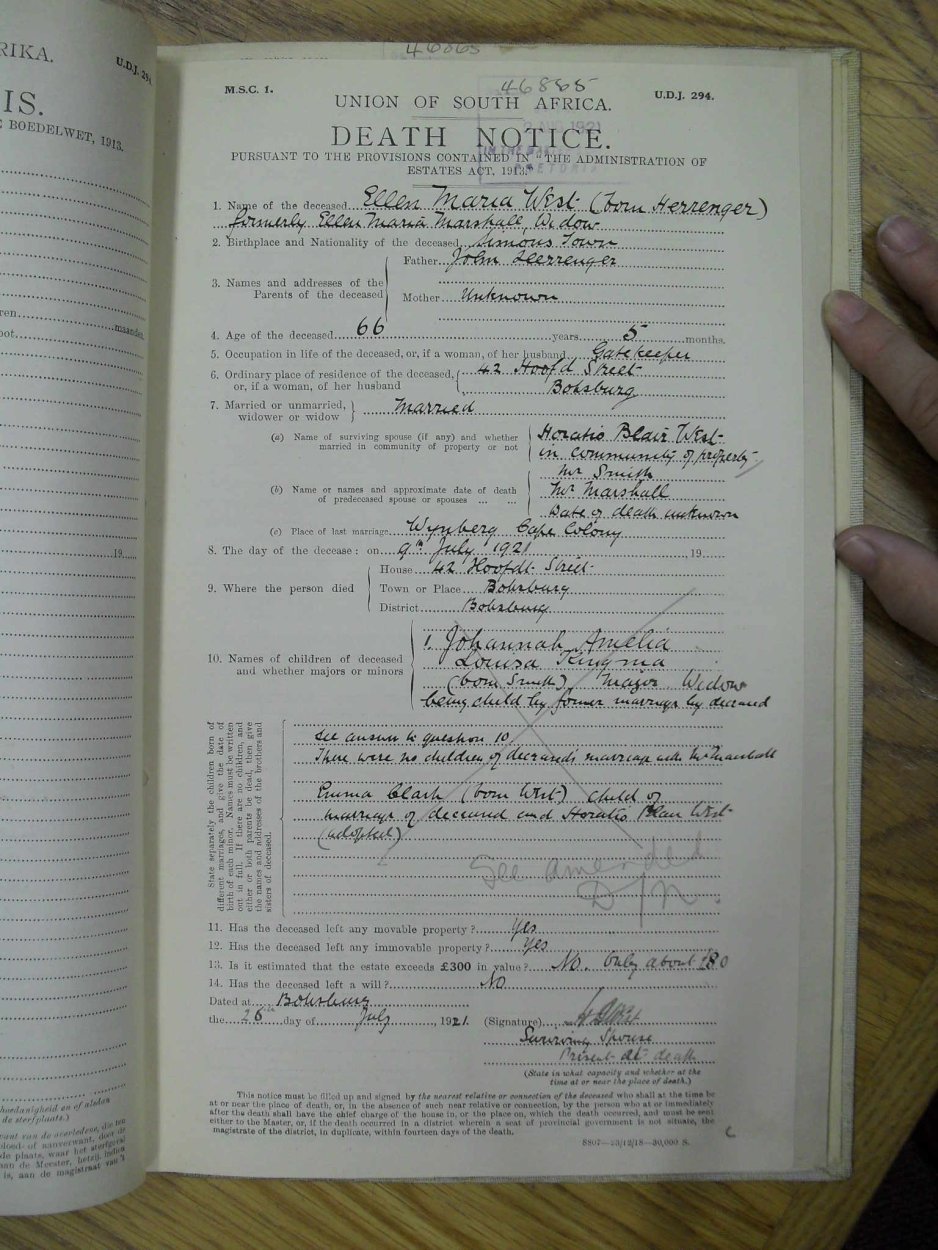 RIKA.
U.D.J. 294
IS.
BOEDELWET, 1913.
46865
M.S.C. 1.
46865
U.D.J. 294.
UNION OF SOUTH AFRICA.
DEATH NOTICE.
PURSUANT TO THE PROVISIONS CONTAINED IN "THE ADMINISTRATION OF
ESTATES ACT, 1913."
1. Name of the deceased Ellen Maria West (born Herrenger)
formerly Ellen Maria Marshall, Widow
2. Birthplace and Nationality of the deceased Simons Town
3. Names and addresses of the Parents of the deceased
Father John Herrenger
Mother Unknown
4. Age of the deceased 66 years 5 months.
5. Occupation in life of the deceased, or, if a woman, of her husband Gatekeeper
6. Ordinary place of residence of the deceased, 42 Hoofd Street
or, if a woman, of her husband Boksburg
7. Married or unmarried, widower or widow Married
(a) Name of surviving spouse (if any) and whether married in community of property or not
Horatio Blair West
in community of property
(b) Name or names and approximate date of death of predeceased spouse or spouses ... ...
Mr Smith
Mr Marshall
Date of death unknown
(c) Place of last marriage Wynberg Cape Colony
8. The day of the decease: on 9th July 1921 , 19
9. Where the person died
House 42 Hoofdt Street
Town or Place Boksburg
District Boksburg
10. Names of children of deceased and whether majors or minors
1. Johannah Amelia
Louisa Kingma
(born Smith) Major Widow
being child by former marriage by deceased
State separately the children born of
different marriages, and give the date of
birth of each minor. Names must be written
out in full. If there are no children, and
either or both parents be dead, then give
the names and addresses of the brothers and
sisters of deceased.
See answer to question 10.
There were no children of deceased's marriage with Mr Marshall
Emma Clark (born West) child of
marriage of deceased and Horatio Blair West
(adopted)
See amended
D/N.
11. Has the deceased left any movable property? Yes
12. Has the deceased left any immovable property? Yes
13. Is it estimated that the estate exceeds £300 in value? No. Only about 180
14. Has the deceased left a will? No
Dated at Boksburg
the 26th day of July, 1921. (Signature)
Surviving Spouse
Present at death
(State in what capacity and whether at the
time at or near the place of death.)
This notice must be filled up and signed by the nearest relative or connection of the deceased who shall at the time be
at or near the place of death, or, in the absence of such near relative or connection, by the person who at or immediately
after the death shall have the chief charge of the house in, or the place on, which the death occurred, and must be sent
either to the Master, or, if the death occurred in a district wherein a seat of provincial government is not situate, the
magistrate of the district, in duplicate, within fourteen days of the death.
8807—23/12/18—30,000 S.